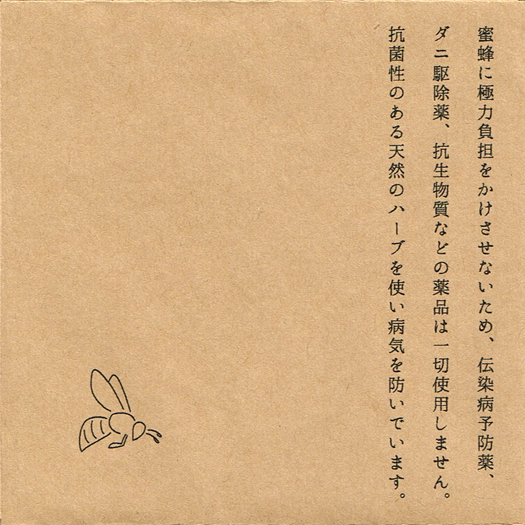 蜜蜂に極力負担をかけさせないため、伝染病予防薬、
ダニ駆除薬、抗生物質などの薬品は一切使用しません。
抗菌性のある天然のハーブを使い病気を防いでいます。